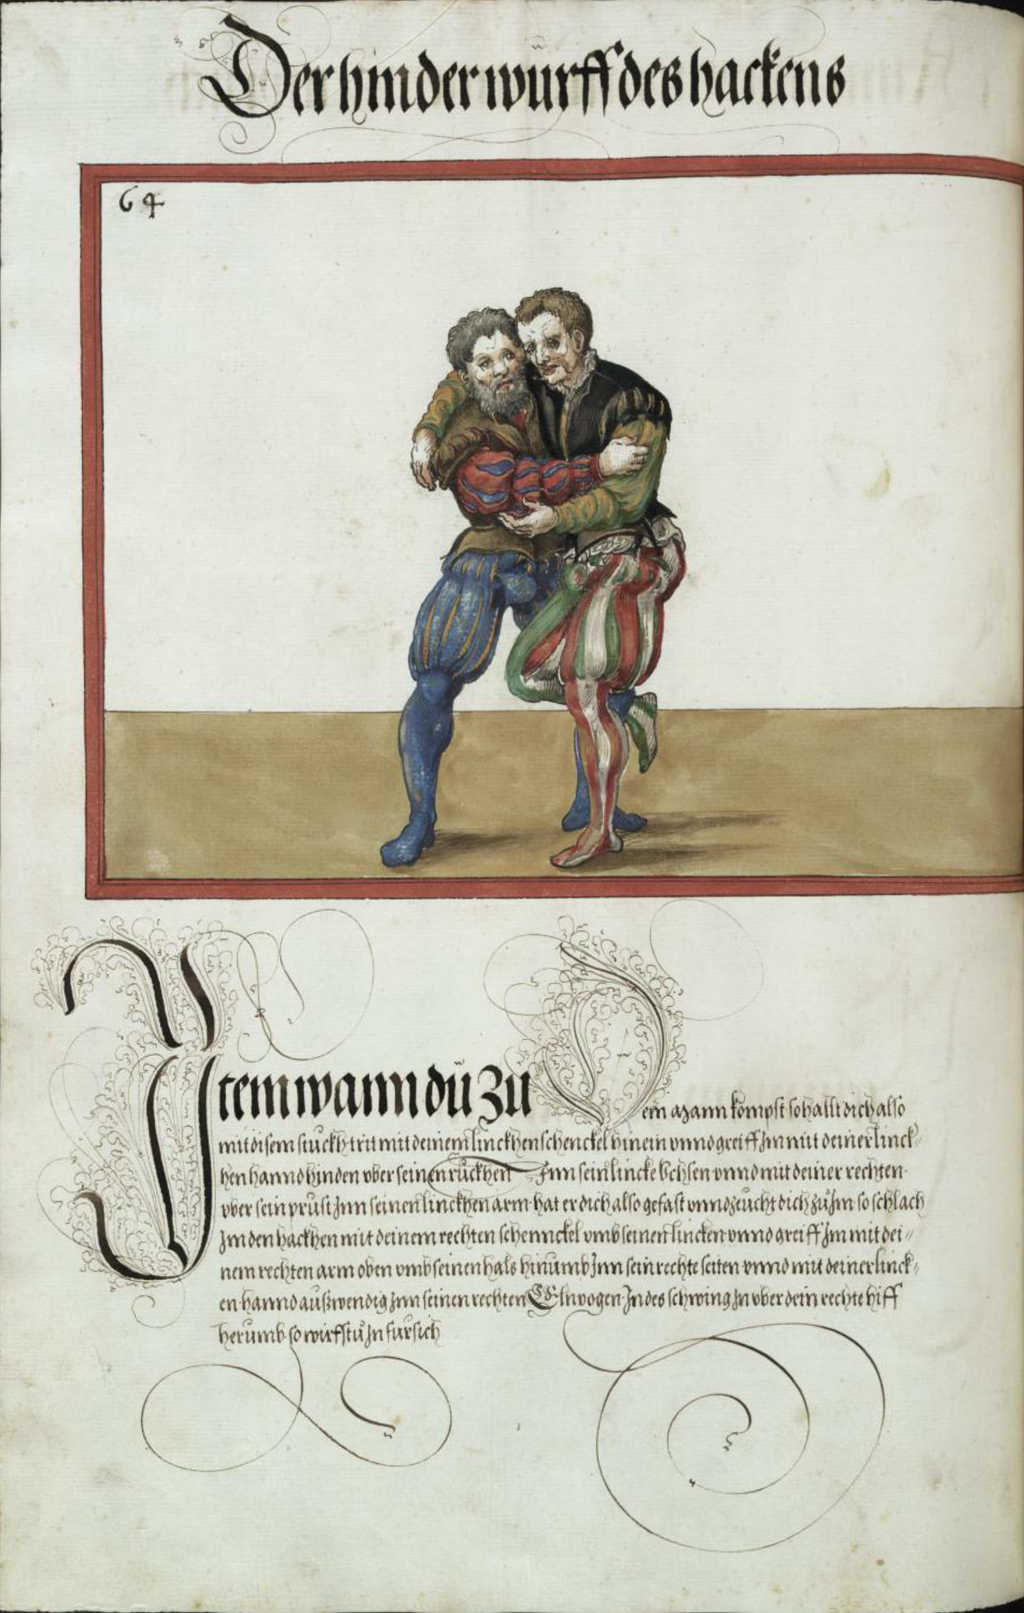 Der hinder würff des hackens
64
Item wann dü zü dem a3ann kompst so hallt dich also
mit disem stückh trit mit deinem linckhen schenckel hinein vnnd greiff Jm mit deiner linck-
hen hannd hinden vber seinen rückhen Jnn sein lincke Vchsen vnnd mit deiner rechten
vber sein prüst Jnn seinen linckhen arm hat er dich also gefast vnnd zeucht dich zü Jm so schlach
Jm den hackhen mit deinem rechten schennckel vmb seinen lincken vnnd greiff Jm mit dei-
nem rechten arm oben vmb seinen hals hinümb Jnn sein rechte seiten vnnd mit deiner linck-
en hannd außwendig Jnn seinen rechten Elnpogen Jn des schwing Jn vber dein rechte hiff
herümb so wirfstü Jn für sich